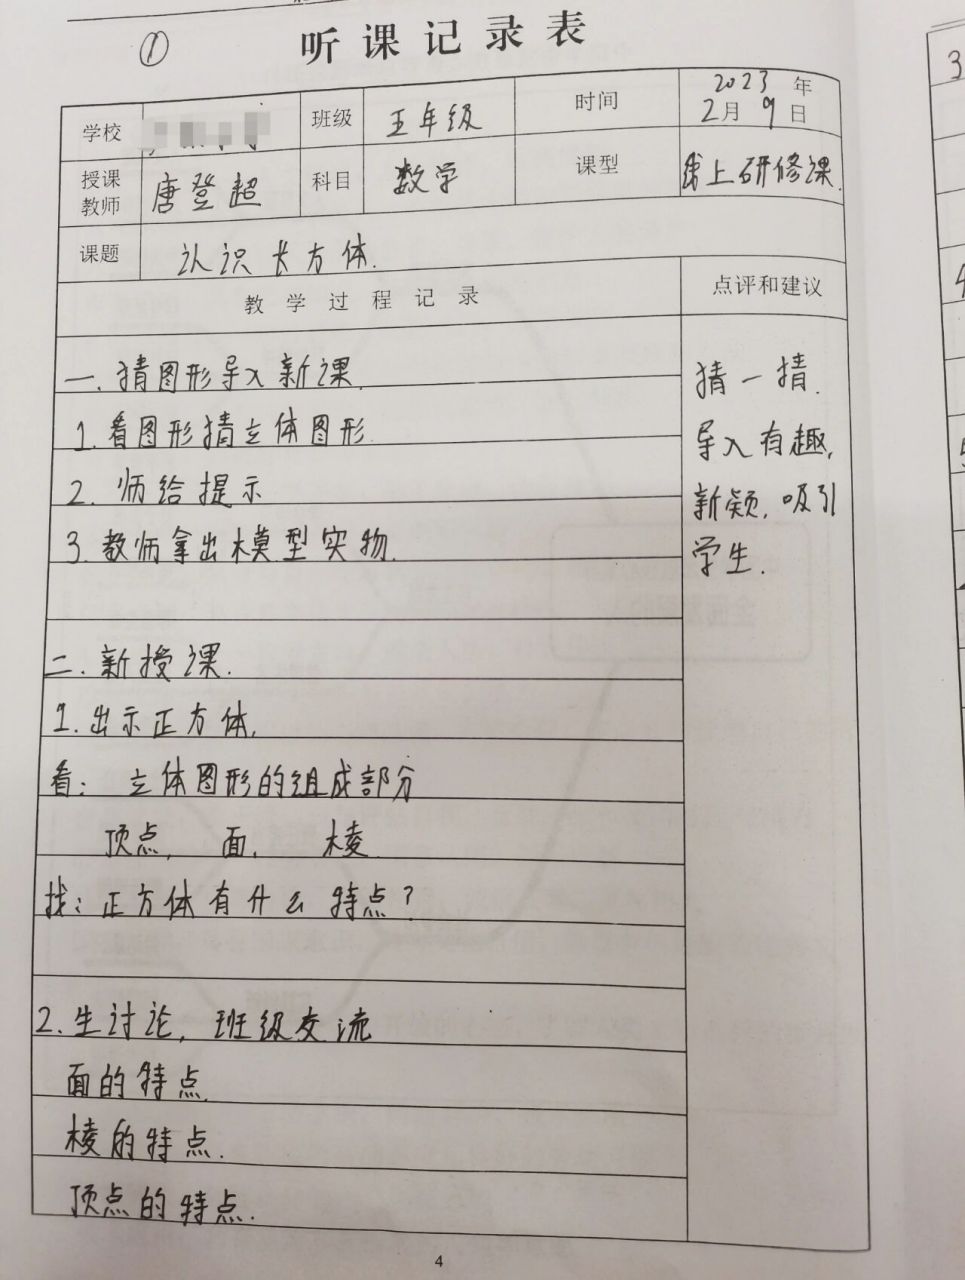 ①
听课记录表
学校 班级 五年级 时间 2023年2月9日
授课教师 唐登超 科目 数学 课型 线上研修课.
课题 认识长方体.
教学过程记录 点评和建议
一.猜图形导入新课.
1.看图形猜立体图形.
2.师给提示
3.教师拿出模型实物.
二.新授课.
1.出示正方体.
看: 立体图形的组成部分
顶点, 面, 棱.
找:正方体有什么特点?
2.生讨论,班级交流
面的特点.
棱的特点.
顶点的特点.
猜一猜.
导入有趣,
新颖,吸引
学生.
4
3